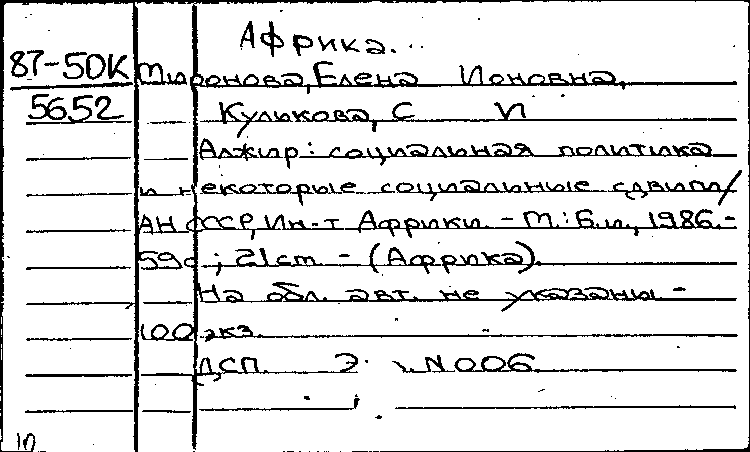 Африка...
87-5DK Миронова, Елена Ионовна,
5652 Кулькова, С И
Алжир: социальная политика
и некоторые социальные сдвиги/
АН СССР, Ин-т Африки. - М.: Б.и., 1986.-
59с; 21cm - (Африка).
На обл. авт. не указаны -
100 экз.
ДСП. Э. N006
10